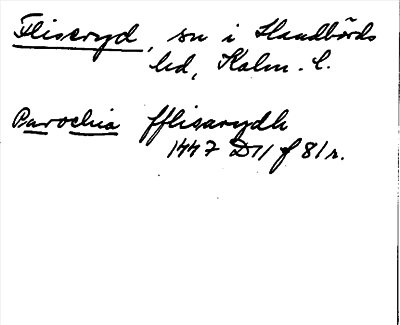 Fliseryd, sn i Handbörds
hd, Kalm. l.
Parochia fflisarydh
1447 D11 f 81r.